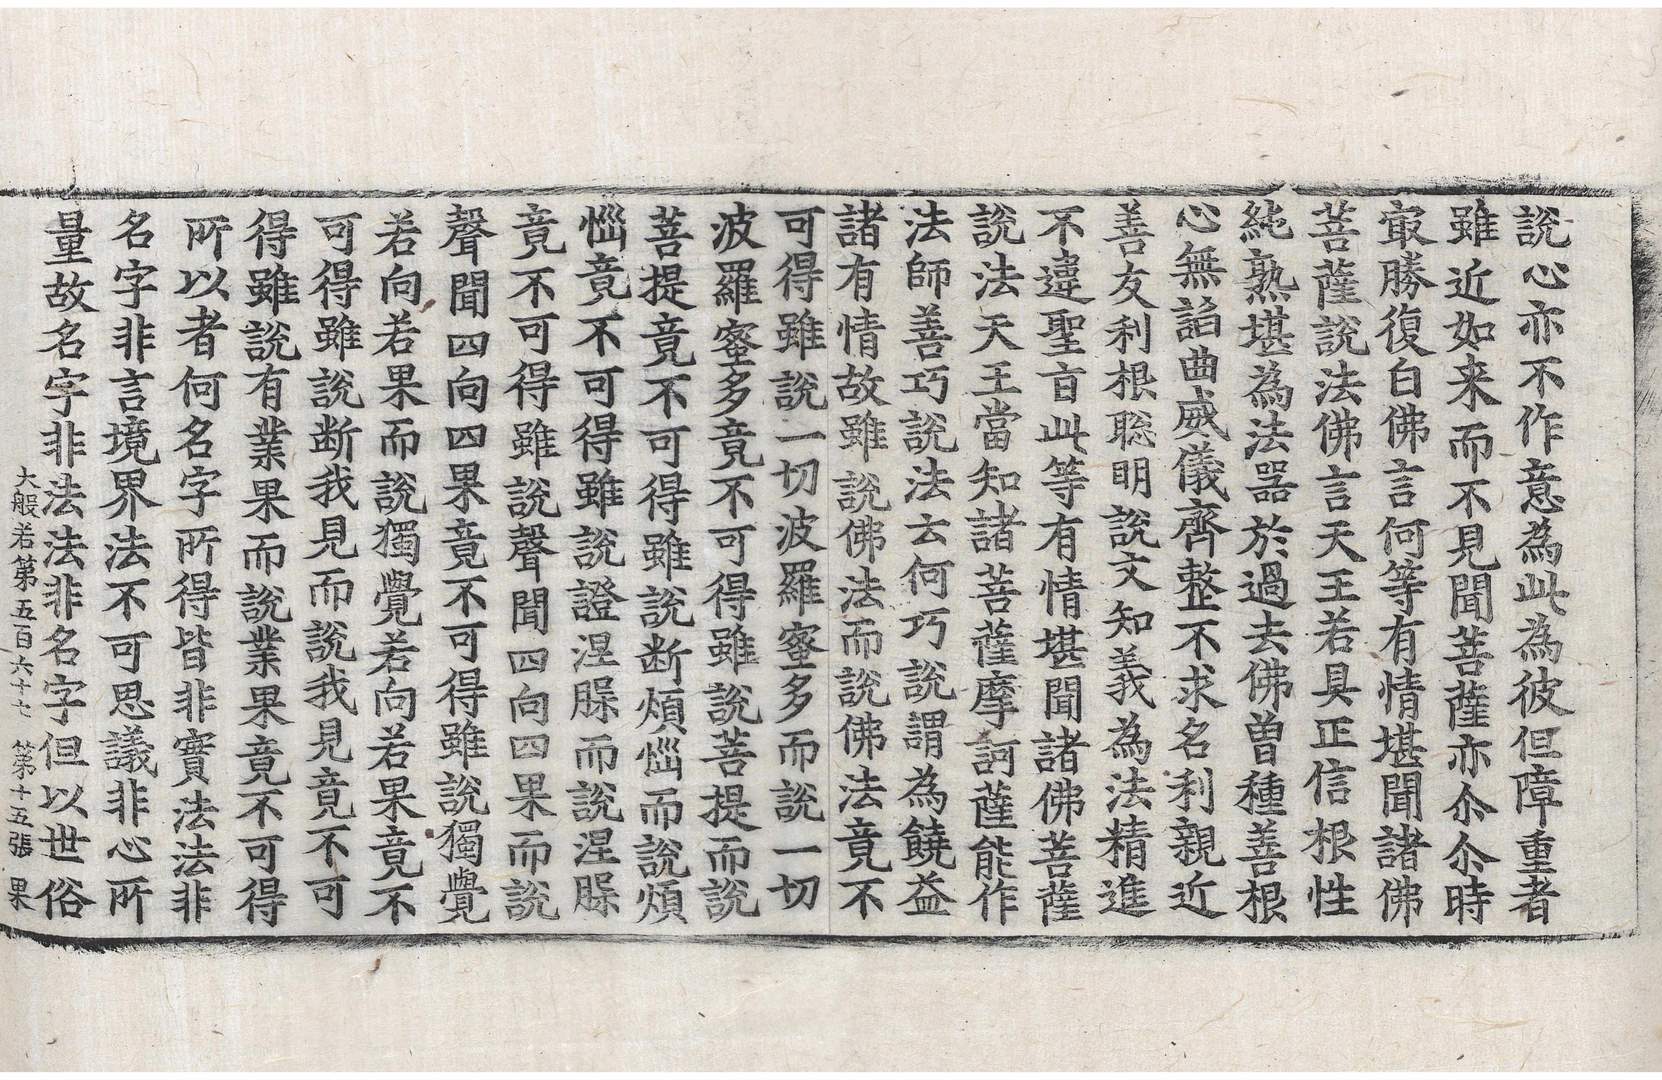 說心亦不作意為此為彼但障重者
雖近如来而不見聞菩薩亦尒尒時
㝡勝復白佛言何等有情堪聞諸佛
菩薩說法佛言天王若具正信根性
純熟堪為法器於過去佛曽種善根
心無諂曲威儀齊整不求名利親近
善友利根聡明說文知義為法精進
不違聖㫖此等有情堪聞諸佛菩薩
說法天王當知諸菩薩摩訶薩能作
法師善巧說法云何巧說謂為饒益
諸有情故雖說佛法而說佛法竟不
可得雖說一切波羅蜜多而說一切
波羅蜜多竟不可得雖說菩提而說
菩提竟不可得雖說断煩惱而說煩
惱竟不可得雖說證涅槃而說涅槃
竟不可得雖說聲聞四向四果而說
聲聞四向四果竟不可得雖說獨覺
若向若果而說獨覺若向若果竟不
可得雖說断我見而說我見竟不可
得雖說有業果而說業果竟不可得
所以者何名字所得皆非實法法非
名字非言境界法不可思議非心所
量故名字非法法非名字但以世俗
大般若第五百六十七　第十五張　果